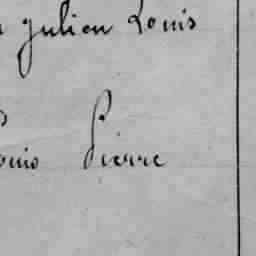 Julien Louis
Pierre